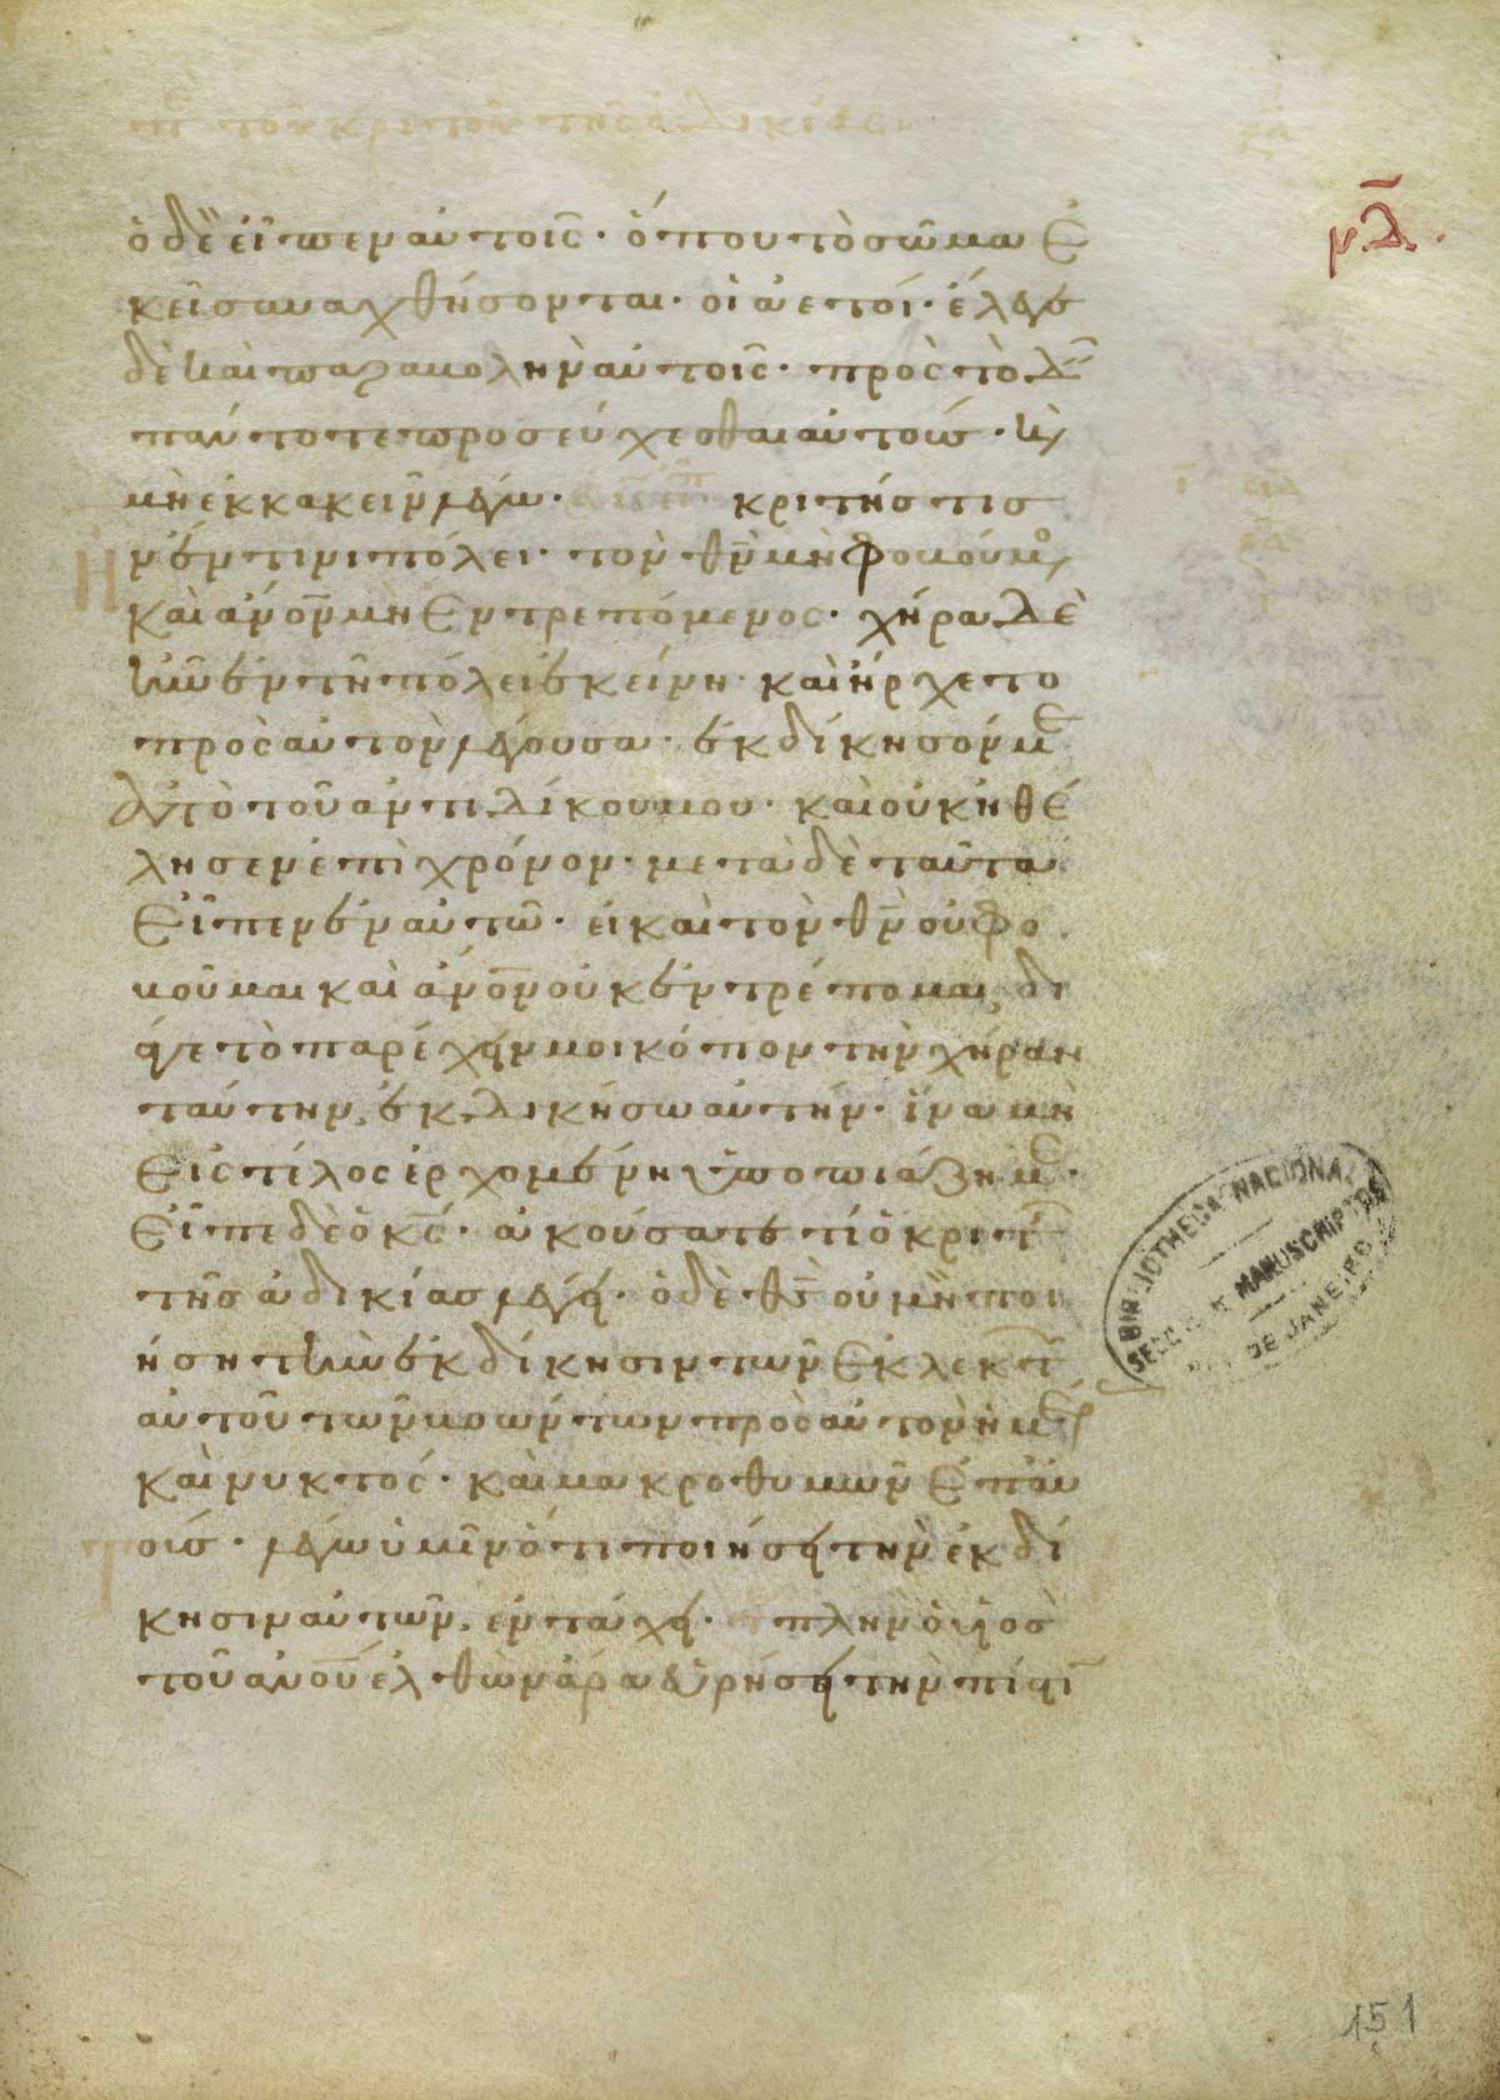 τοῦ κριτοῦ τῆς ἀδικίας
μ̅δ̅.
ὁ δὲ εἶπεν αὐτοῖς· ὅπου τὸ σῶμα ἐ
κεῖ συναχθήσονται· οἱ ἀετοί· ἔλεγεν
δὲ καὶ παραβολὴν αὐτοῖς· πρὸς τὸ δεῖ
πάντοτε προσεύχεσθαι αὐτούς· κ(αὶ)
μὴ ἐκκακεῖν λέγων· κριτής τις
ἦν ἔν τινι πόλει· τὸν θ̅ν̅ μὴ φοβούμενο(ς)
καὶ ἄν̅ο̅ν̅ μὴ ἐντρεπόμενος· χήρα δὲ
ἦν ἐν τῇ πόλει ἐκείνῃ· καὶ ἤρχετο
πρὸς αὐτὸν λέγουσα· ἐκδίκησόν με
ἀπὸ τοῦ ἀντιδίκου μου· καὶ οὐκ ἠθέ
λησεν ἐπὶ χρόνον· μετὰ δὲ ταῦτα
εἶπεν ἐν αὑτῷ· εἰ καὶ τὸν θ̅ν̅ οὐ φο
βοῦμαι καὶ ἄν̅ο̅ν̅ οὐκ ἐντρέπομαι, δι
ά γε τὸ παρέχειν μοι κόπον τὴν χήραν
ταύτην, ἐκδικήσω αὐτήν· ἵνα μὴ
εἰς τέλος ἐρχομένη ὑποπιάζῃ με·
εἶπε δὲ ὁ κ̅ς̅· ἀκούσατε τί ὁ κριτὴς
τῆς ἀδικίας λέγει· ὁ δὲ θ̅ς̅ οὐ μὴ ποι
ήσῃ τὴν ἐκδίκησιν τῶν ἐκλεκτῶν
αὐτοῦ τῶν βοώντων πρὸς αὐτὸν ἡμέρ(ας)
καὶ νυκτός· καὶ μακροθυμῶν ἐπ' αὐ
οῖς· λέγω ὑμῖν ὅτι ποιήσει τὴν ἐκδί
κησιν αὐτῶν, ἐν τάχει· πλὴν ὁ υἱὸς
τοῦ ἀν̅ο̅υ̅ ἐλθὼν ἆρα εὑρήσει τὴν πίστι(ν)
BIBLIOTHECA NACIONAL
MANUSCRIPTOS
DE JANEIRO
151